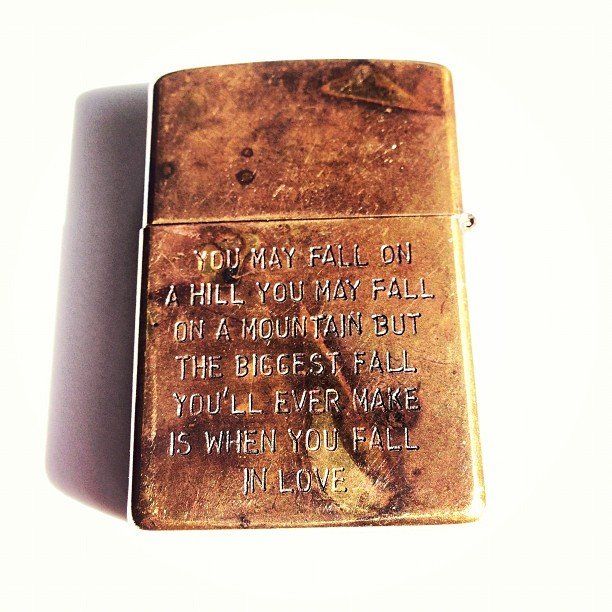 YOU MAY FALL ON
A HILL YOU MAY FALL
ON A MOUNTAIN BUT
THE BIGGEST FALL
YOU'LL EVER MAKE
IS WHEN YOU FALL
IN LOVE